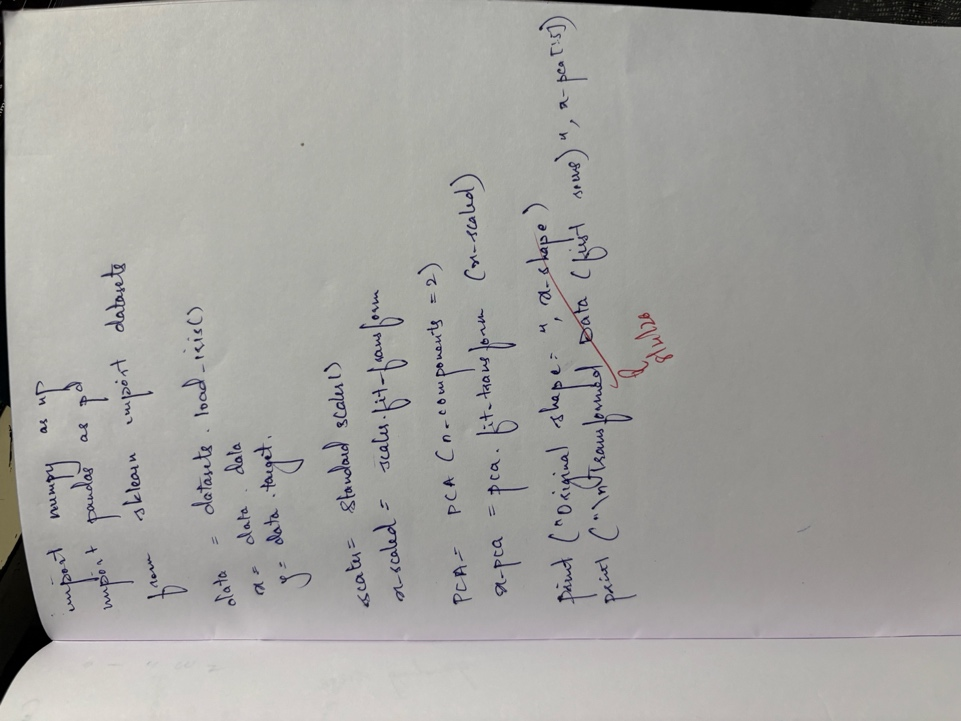 import numpy as np
import pandas as pd
from sklearn import datasets
data = datasets.load_iris()
x = data.data
y = data.target.
scaler = standard scaler()
x-scaled = scaler.fit-transform
PCA = PCA (n-components = 2)
x-pca = pca.fit-transform (x-scaled)
print ("Original shape = ", x-shape)
print ("\nTransformed Data (first rows) ", x-pca[:5])